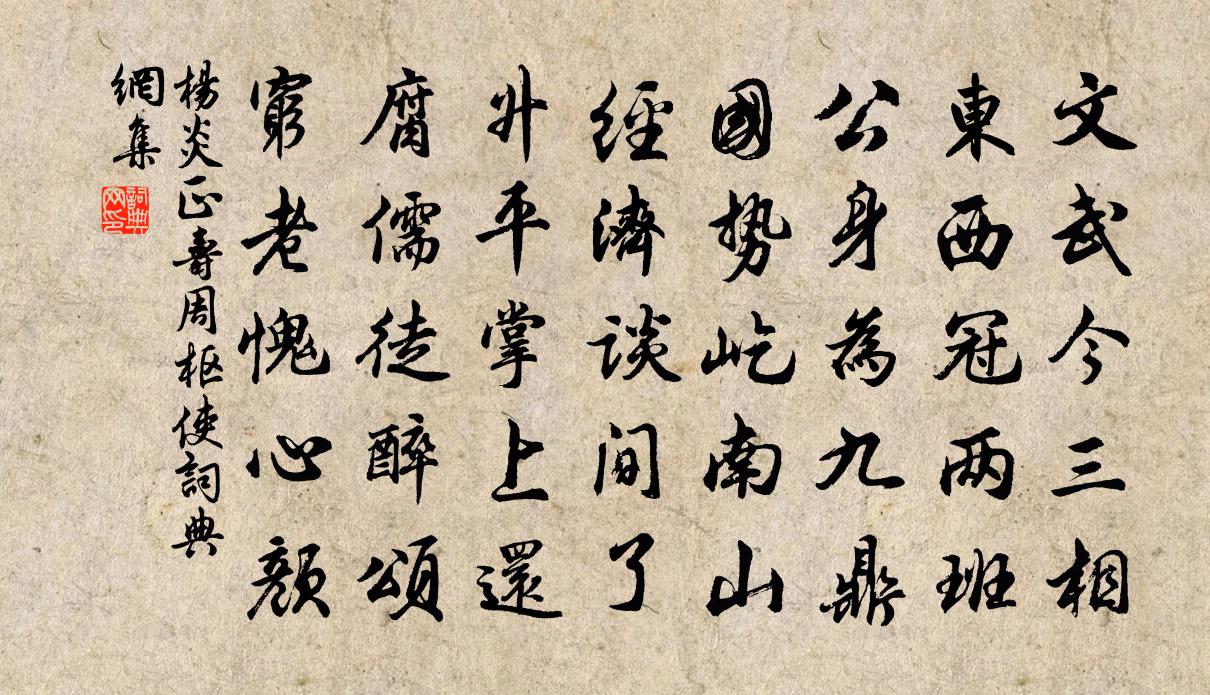 文武今三相
東西冠两班
公身為九鼎
國势屹南山
經濟談间了
升平掌上還
腐儒徒醉頌
窮老愧心顔
楊炎正壽周枢使詞典
網集
詞典
网印